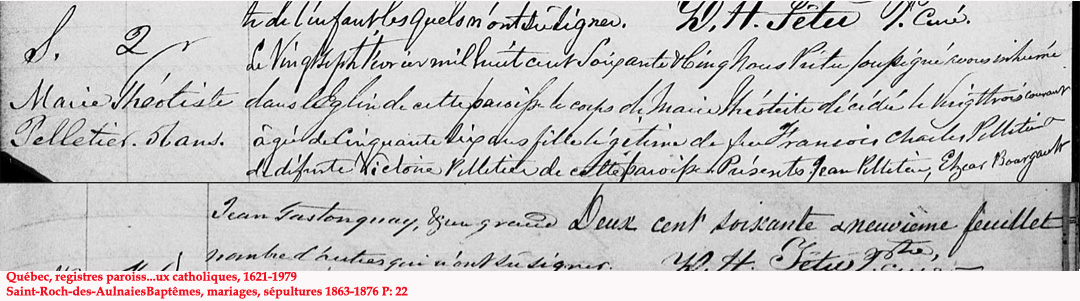 & de l'enfant lesquels n'ont su signer. W. H. Têtu Ptre Curé.
S. 2
Marie Théotiste
Pelletier. ans.
Le Vingt sept février mil huit cent Soixante & Cinq Nous Prêtre soussigné avons inhumé
dans l'Eglise de cette paroisse le corps de Marie Théotiste décédée le vingt trois courant
âgée de Cinquante dix ans fille légitime de feu François Charles Pelletier
& défunte Victoire Pelletier de cette paroisse. Présents Jean Pelletier, Elzéar Bourgault
Jean Gastonguay, & un grand Deux cent soixante & neuvième feuillet
nombre d'autres qui n'ont su signer. W. H. Têtu Ptre,
Québec, registres paroiss...ux catholiques, 1621-1979
Saint-Roch-des-AulnaiesBaptêmes, mariages, sépultures 1863-1876 P: 22